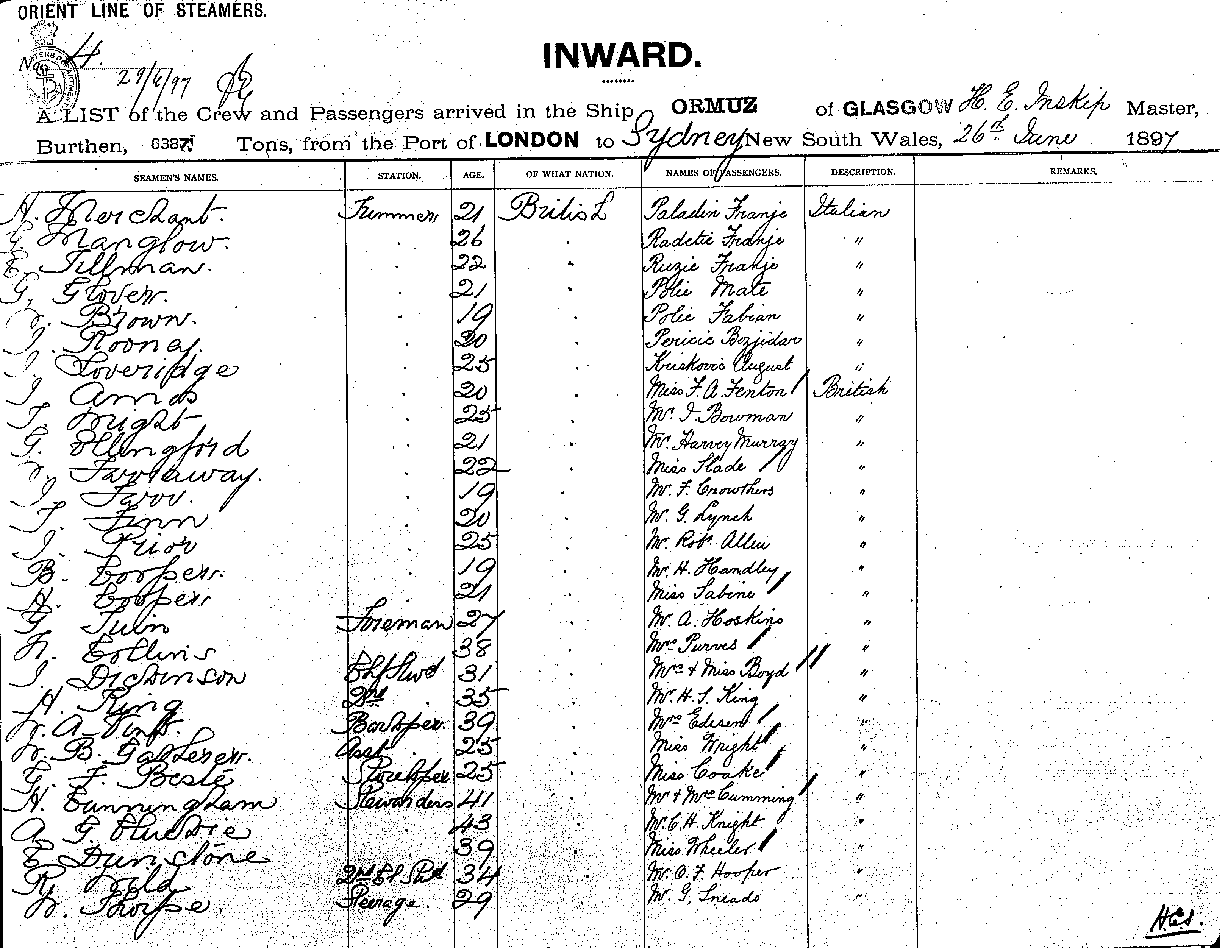 ORIENT LINE OF STEAMERS.
No. 4.
29/6/97
INWARD.
A LIST of the Crew and Passengers arrived in the Ship ORMUZ of GLASGOW H. E. Inskip Master,
Burthen, 6387 Tons, from the Port of LONDON to Sydney New South Wales, 26th June 1897
SEAMEN'S NAMES. STATION. AGE. OF WHAT NATION. NAMES OF PASSENGERS. DESCRIPTION. REMARKS.
H. Merchant. Trimmer 21 British Paladin Franje Italian
Manglow. 26 . Radetic Franje "
E. Tillman. . 22 . Ruzie Franje "
G. Glover. . 21 . Polic Mate "
Brown. . 19 . Polic Fabian "
J. Rooney. . 20 . Pericic Bozjidar "
J. Loveridge . 25 . August "
J. Amos . 20 . Miss F. A. Fenton / British
T. Wright . 25 . Mr. J. Bowman "
G. Ellingford . 21 . Mr. Harvey Murray "
. 22 . Miss Slade / "
J. Farr. . 19 . Mr. F. Crowthers "
T. Finn . 20 . Mr. G. Lynch "
J. Prior . 25 . Mr. Robt. Allen "
B. Cooper. . 19 . Mr. H. Handley / "
H. Cooper. . 21 . Miss Sabine / "
Foreman 27 . Mr. A. Hoskins "
Collins 38 . Mrs Purves / "
J. Dickinson Ch/Stwd 31 . Mrs & Miss Boyd // "
H. King 2nd 35 . Mr. H. S. King "
W. A. Barkper. 39 . Mrs Edesen / "
W. B. Gatherer. Asst. 25 . Miss Wright / "
G. F. Beste Storekper 25 . Miss Cooke / "
H. Cunningham Stewardess 41 . Mr & Mrs Cumming / "
A. G. 43 . Mr. C. H. Knight "
E. Dunstone 39 . Miss Wheeler / "
R. Wild 2nd Cl Std 34 . Mr. O. F. Hooper "
W. Thorpe Steerage 29 . Mr. G. Sneado "